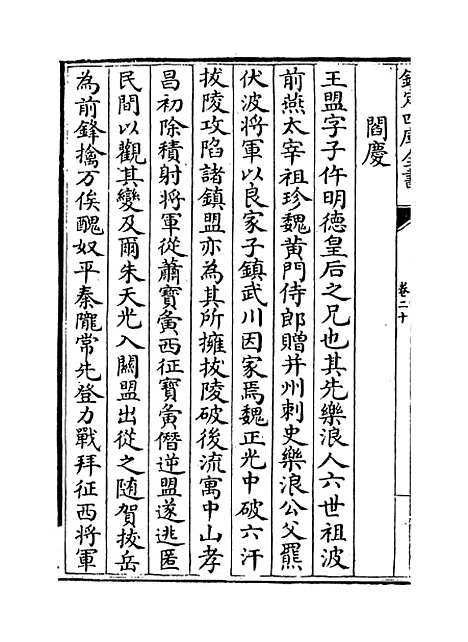 欽定四庫全書
卷二十
閻慶
王盟字子仵明德皇后之兄也其先樂浪人六世祖波
前燕太宰祖珍魏黃門侍郎贈并州刺史樂浪公父羆
伏波將軍以良家子鎮武川因家焉魏正光中破六汗
拔陵攻陷諸鎮盟亦為其所擁拔陵破後流寓中山孝
昌初除積射將軍從蕭寶夤西征寶夤僭逆盟遂逃匿
民間以觀其變及爾朱天光入關盟出從之随賀拔岳
為前鋒擒万俟醜奴平秦隴常先登力戰拜征西將軍